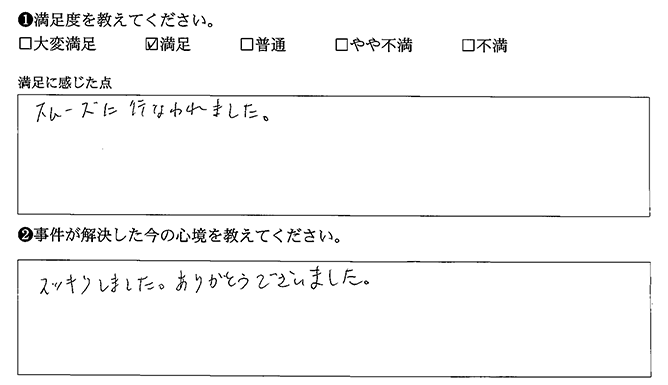 ❶満足度を教えてください。
□大変満足 ☑満足 □普通 □やや不満 □不満
満足に感じた点
スムーズに行なわれました。
❷事件が解決した今の心境を教えてください。
スッキリしました。ありがとうございました。